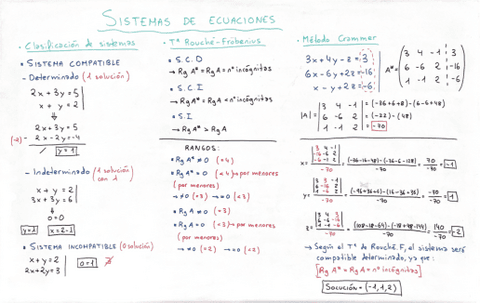 SISTEMAS DE ECUACIONES
• Clasificación de sistemas
• SISTEMA COMPATIBLE
- Determinado (1 solución)
2x + 3y = 5
x + y = 2
2x + 3y = 5
2x - 2y = -4
y = 1
- Indeterminado (1 solución con λ)
x + y = 2
3x + 3y = 6
0 = 0
y = λ
x = 2 - λ
• SISTEMA INCOMPATIBLE (0 solución)
x + y = 2
2x + 2y = 3
0 = 1
• Tª Rouché-Fröbenius
• S.C.D
→ Rg A* = Rg A = nº incógnitas
• S.C.I
→ Rg A* = Rg A < nº incógnitas
• S.I
→ Rg A* > Rg A
RANGOS:
• Rg A* ≠ 0 (=4)
• Rg A* = 0 (<4) → por menores
(por menores)
→ ≠0 (=3) → =0 (<3)
• Rg A ≠ 0 (=3)
• Rg A = 0 (<3) → por menores
(por menores)
→ ≠0 (=2) → =0 (<2)
• Método Crammer
3x + 4y - z = 3
6x - 6y + 2z = -16
x - y + 2z = -6
A* = (3 4 -1 3
6 -6 2 -16
1 -1 2 -6)
|A| = |3 4 -1
6 -6 2
1 -1 2| = (-36+6+8) - (6-6+48)
= (-22) - (48)
= -70
= 70/-70 = -1
= -70/-70 = 1
= 140/-70 = -2
→ Según el Tª de Rouché F, el sistema será
compatible determinado, ya que:
[Rg A* = Rg A = nº incógnitas]
SOLUCIÓN = (-1, 1, 2)